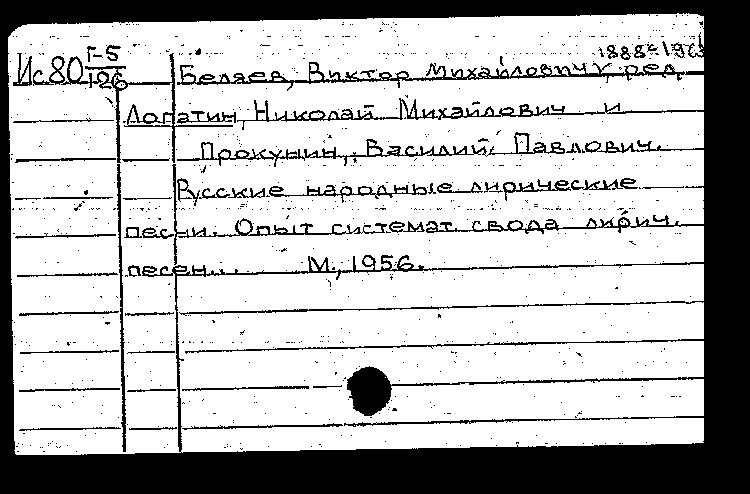 1888-196
Ис80 Г-5/126 Беляев, Виктор Михайлович, ред.
Лопатин, Николай Михайлович и
Прокунин, Василий Павлович.
Русские народные лирические
песни. Опыт системат. свода лирич.
песен... М., 1956.